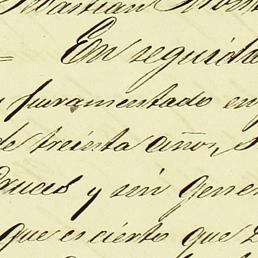 Sebastian
= En seguida
y juramentado en
de treinta año, s
Cruces y sin gener
que es cierto que